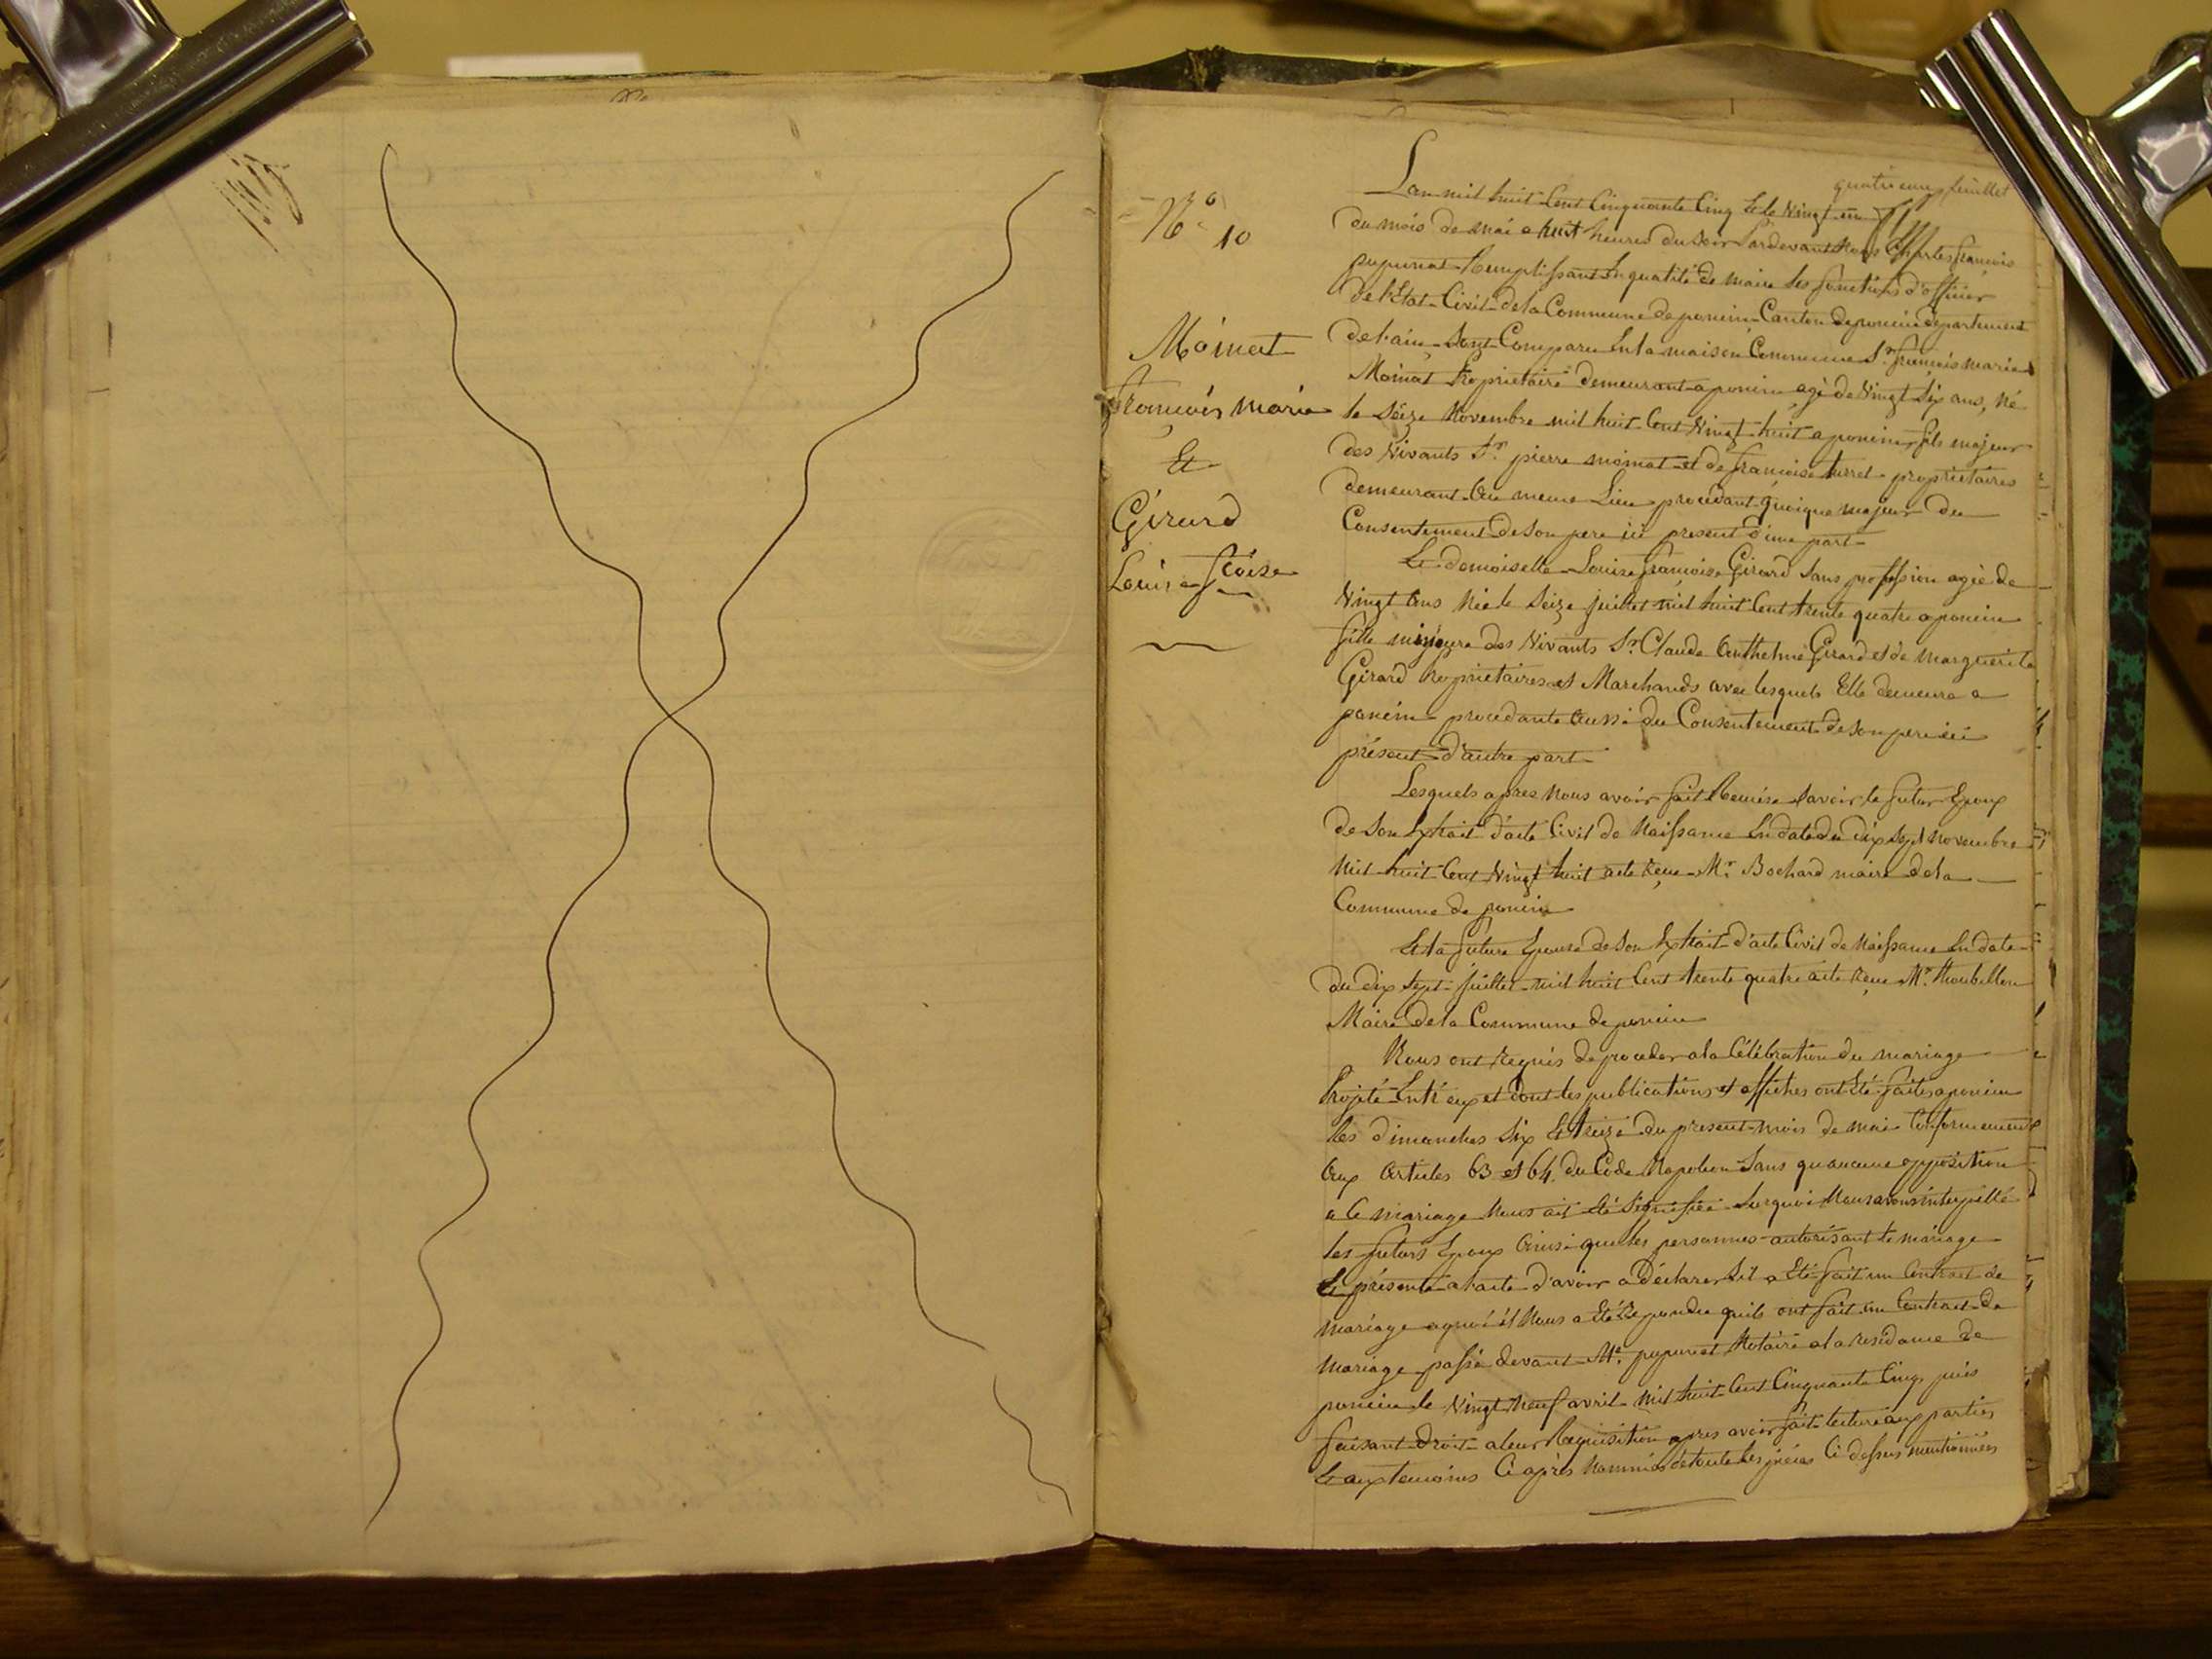 quatrieme feuillet
N° 10
Moinat
francois marie
Et
Girard
Louise fcoise
L'an mil huit Cent Cinquante Cinq Et le Vingt un
du mois de mai a huit heures du soir Pardevant Nous Charles francois
pupunat Remplissant En qualité de maire les fonctions d'officier
de l'Etat Civil de la Commune de poncin Canton de poncin departement
de l'ain Sont Comparu En la maison Commune Sr. francois marie
Moinat Propriétaire demeurant a poncin agé de Vingt Six ans, Né
le Séize Novembre mil huit Cent Vingt huit a poncin fils majeur
des Vivants Sr. pierre moinat et de francoise turrel proprietaires
demeurant Au meme Lieu procedant quoique majeur du
Consentement de son pere ici present d'une part
Et demoiselle Louise francoise Girard Sans profession agée de
Vingt ans Née le Seize juillet mil huit Cent trente quatre a poncin
fille mineure des Vivants Sr. Claude Anthelme Girard et de marguerite
Girard Proprietaires et Marchands avec lesquels Elle demeure a
poncin procedante Aussi du Consentement de son pere ici
présent d'autre part
Lesquels apres Nous avoir fait Remise Savoir le futur Epoux
de Son Extrait d'acte Civil de Naissance En date du dix sept Novembre
mil huit Cent Vingt huit acte reçu Mr. Bochard maire de la
Commune de poncin
Et la future Epouse de Son Extrait d'acte Civil de Naissance En date
du dix Sept juillet mil huit Cent trente quatre acte reçu Mr.
Maire de la Commune de poncin
Nous ont requis de proceder a la Célébration du mariage
Projeté Entr'eux et dont les publications et affiches ont été faites a poncin
les dimanches Six Et treize du present mois de mai Conformement
Aux Articles 63 et 64 du Code Napoleon Sans qu'aucune opposition
a Ce mariage Nous ait été Signifiée Surquoi Nous avons interpellé
les futurs Epoux Ainsi que les personnes autorisant le mariage
Et présente a l'acte d'avoir a Déclarer S'il a Eté fait un Contrat de
mariage a quoi il Nous a Eté Repondu quils ont fait un Contrat de
Mariage passé devant Me. pupunat Notaire a la residance de
poncin le Vingt Neuf avril mil huit Cent Cinquante Cinq, puis
faisant droit a leur Requisition apres avoir fait lecture aux parties
Et aux temoins Ci après Nommés de toute les piéces Ci dessus mentionnées